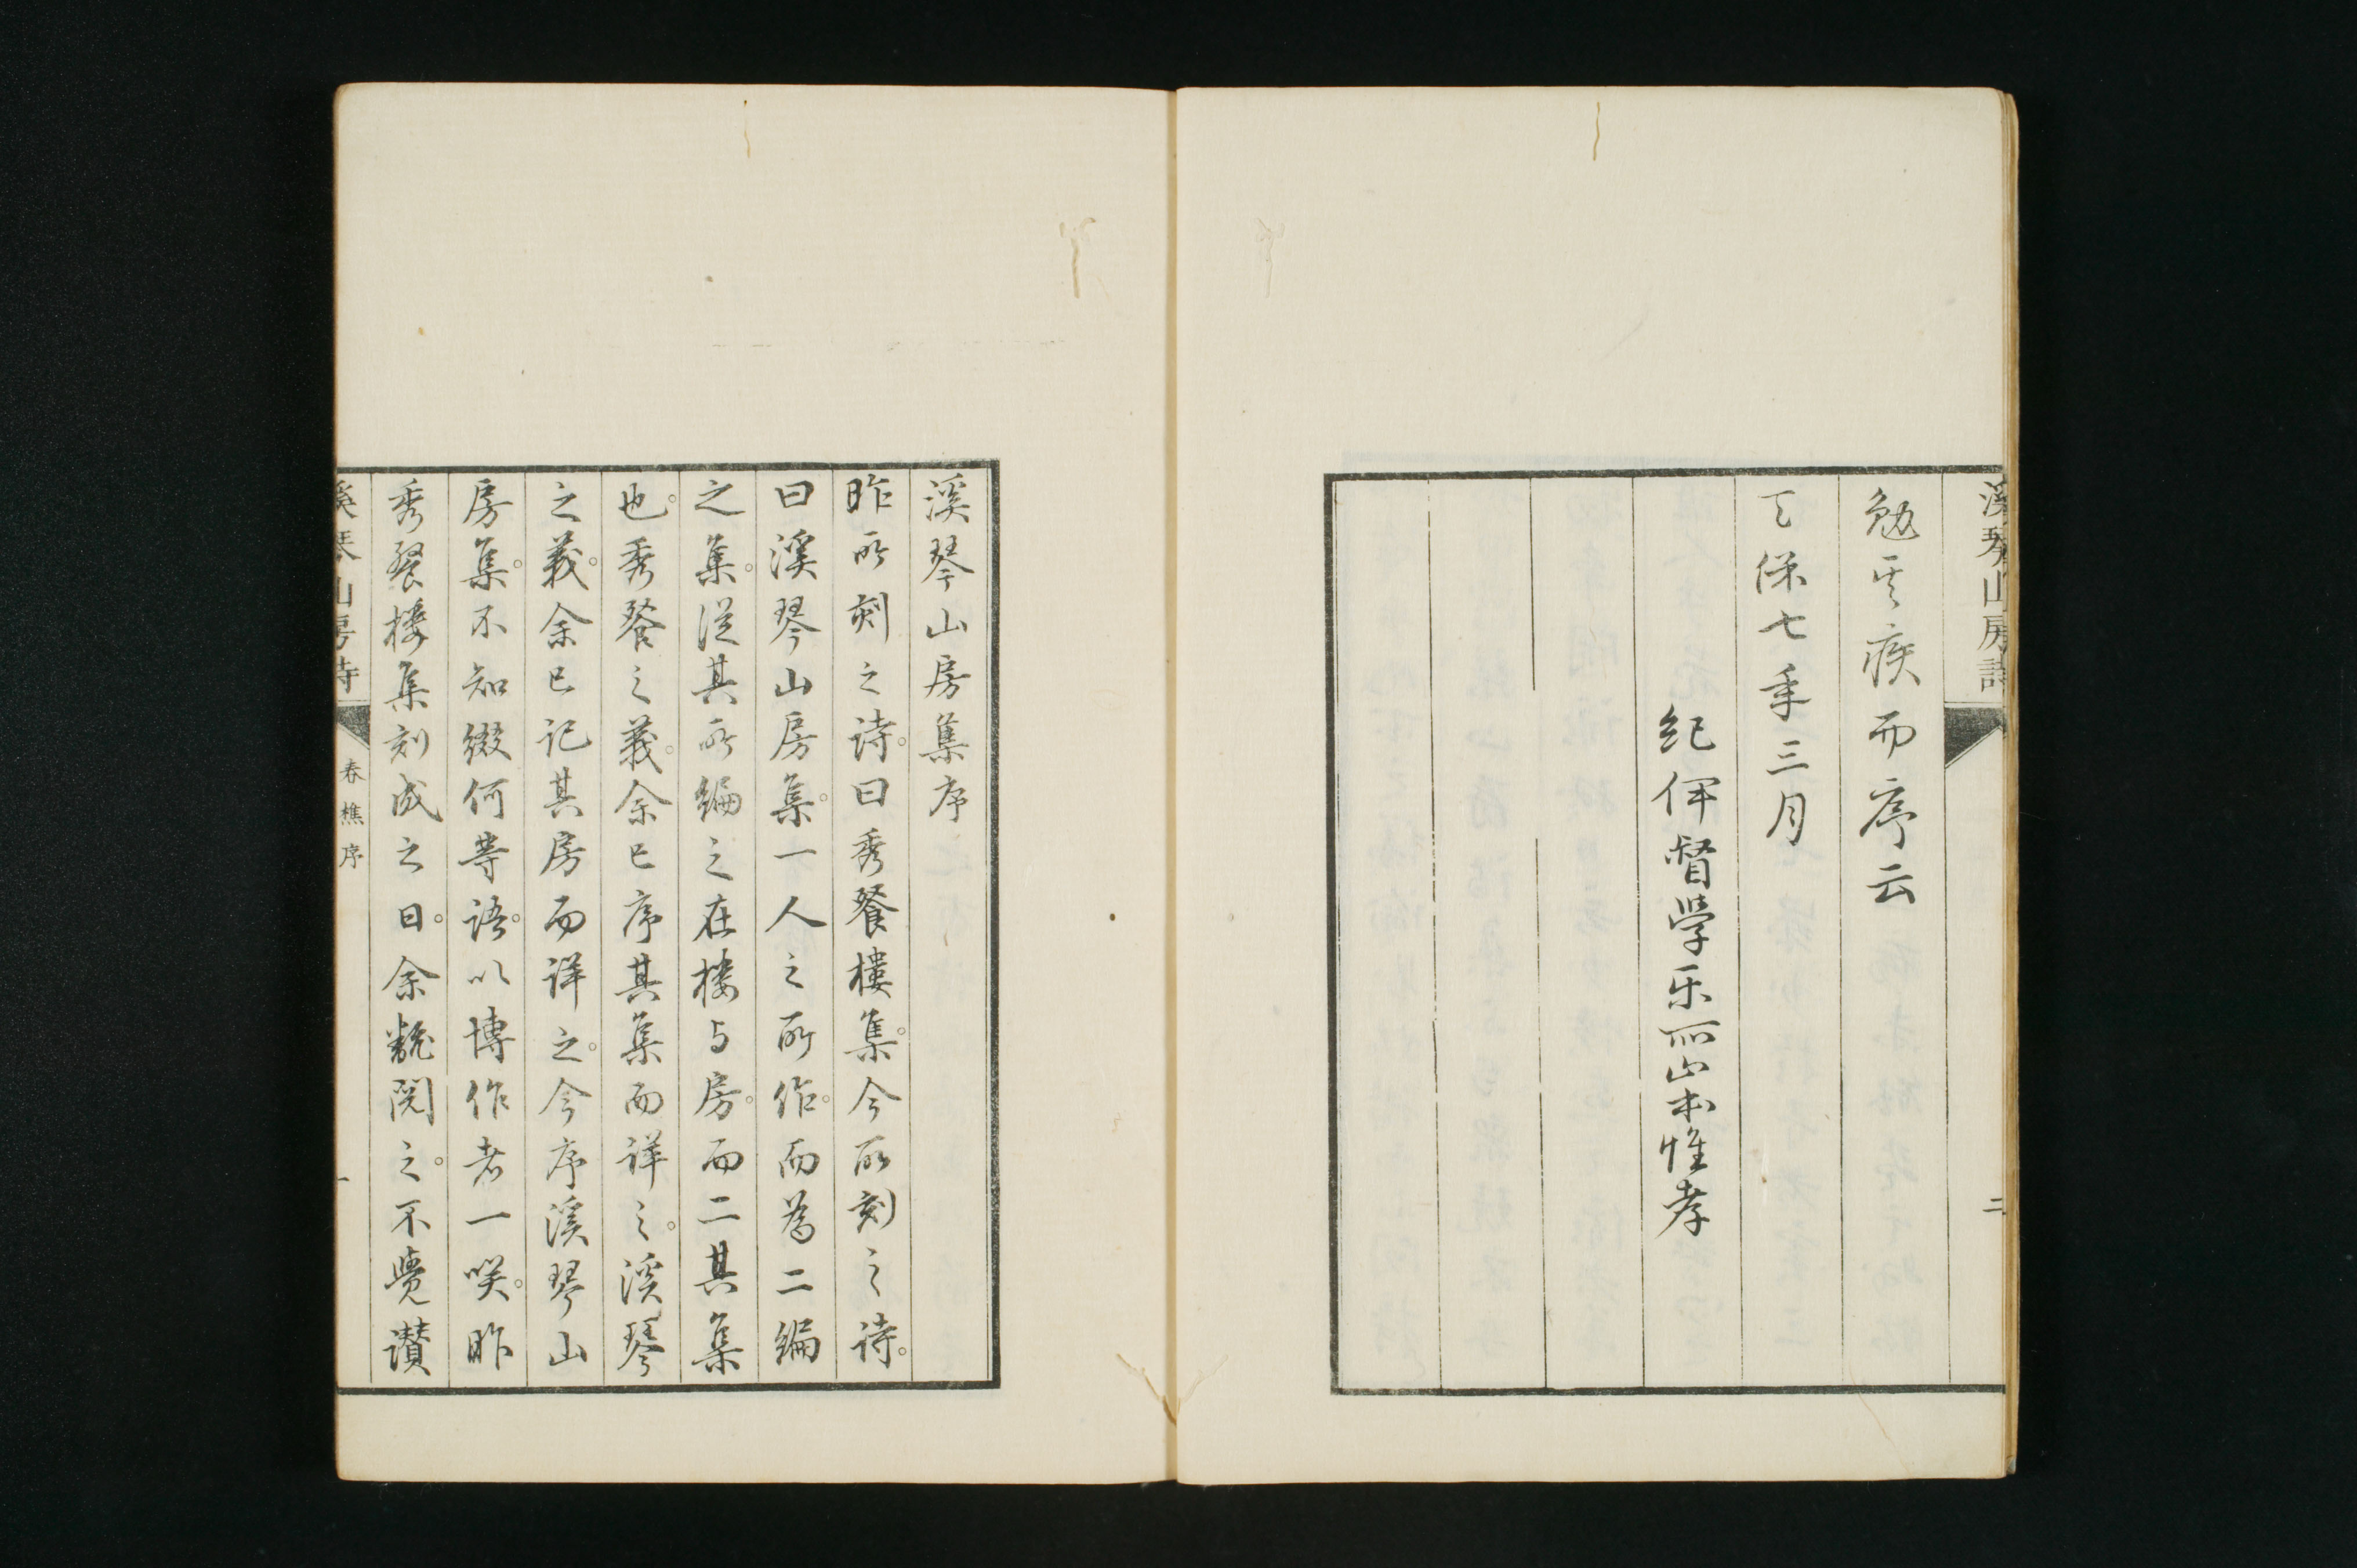 溪琴山房詩
二
勉其疾而序云
天保七年三月
紀伊督學樂所山本惟孝
溪琴山房集序
昨所刻之詩。曰秀餐樓集。今所刻之詩。
曰溪琴山房集。一人之所作。而為二編
之集。從其所編之在樓与房。而二其集
也。秀餐之義。余已序其集而詳之。溪琴
之義。余已記其房而詳之。今序溪琴山
房集。不知綴何等語。以博作者一咲。昨
秀餐樓集刻成之日。余繙閱之。不覺讚
溪琴山房詩
春樵序
一